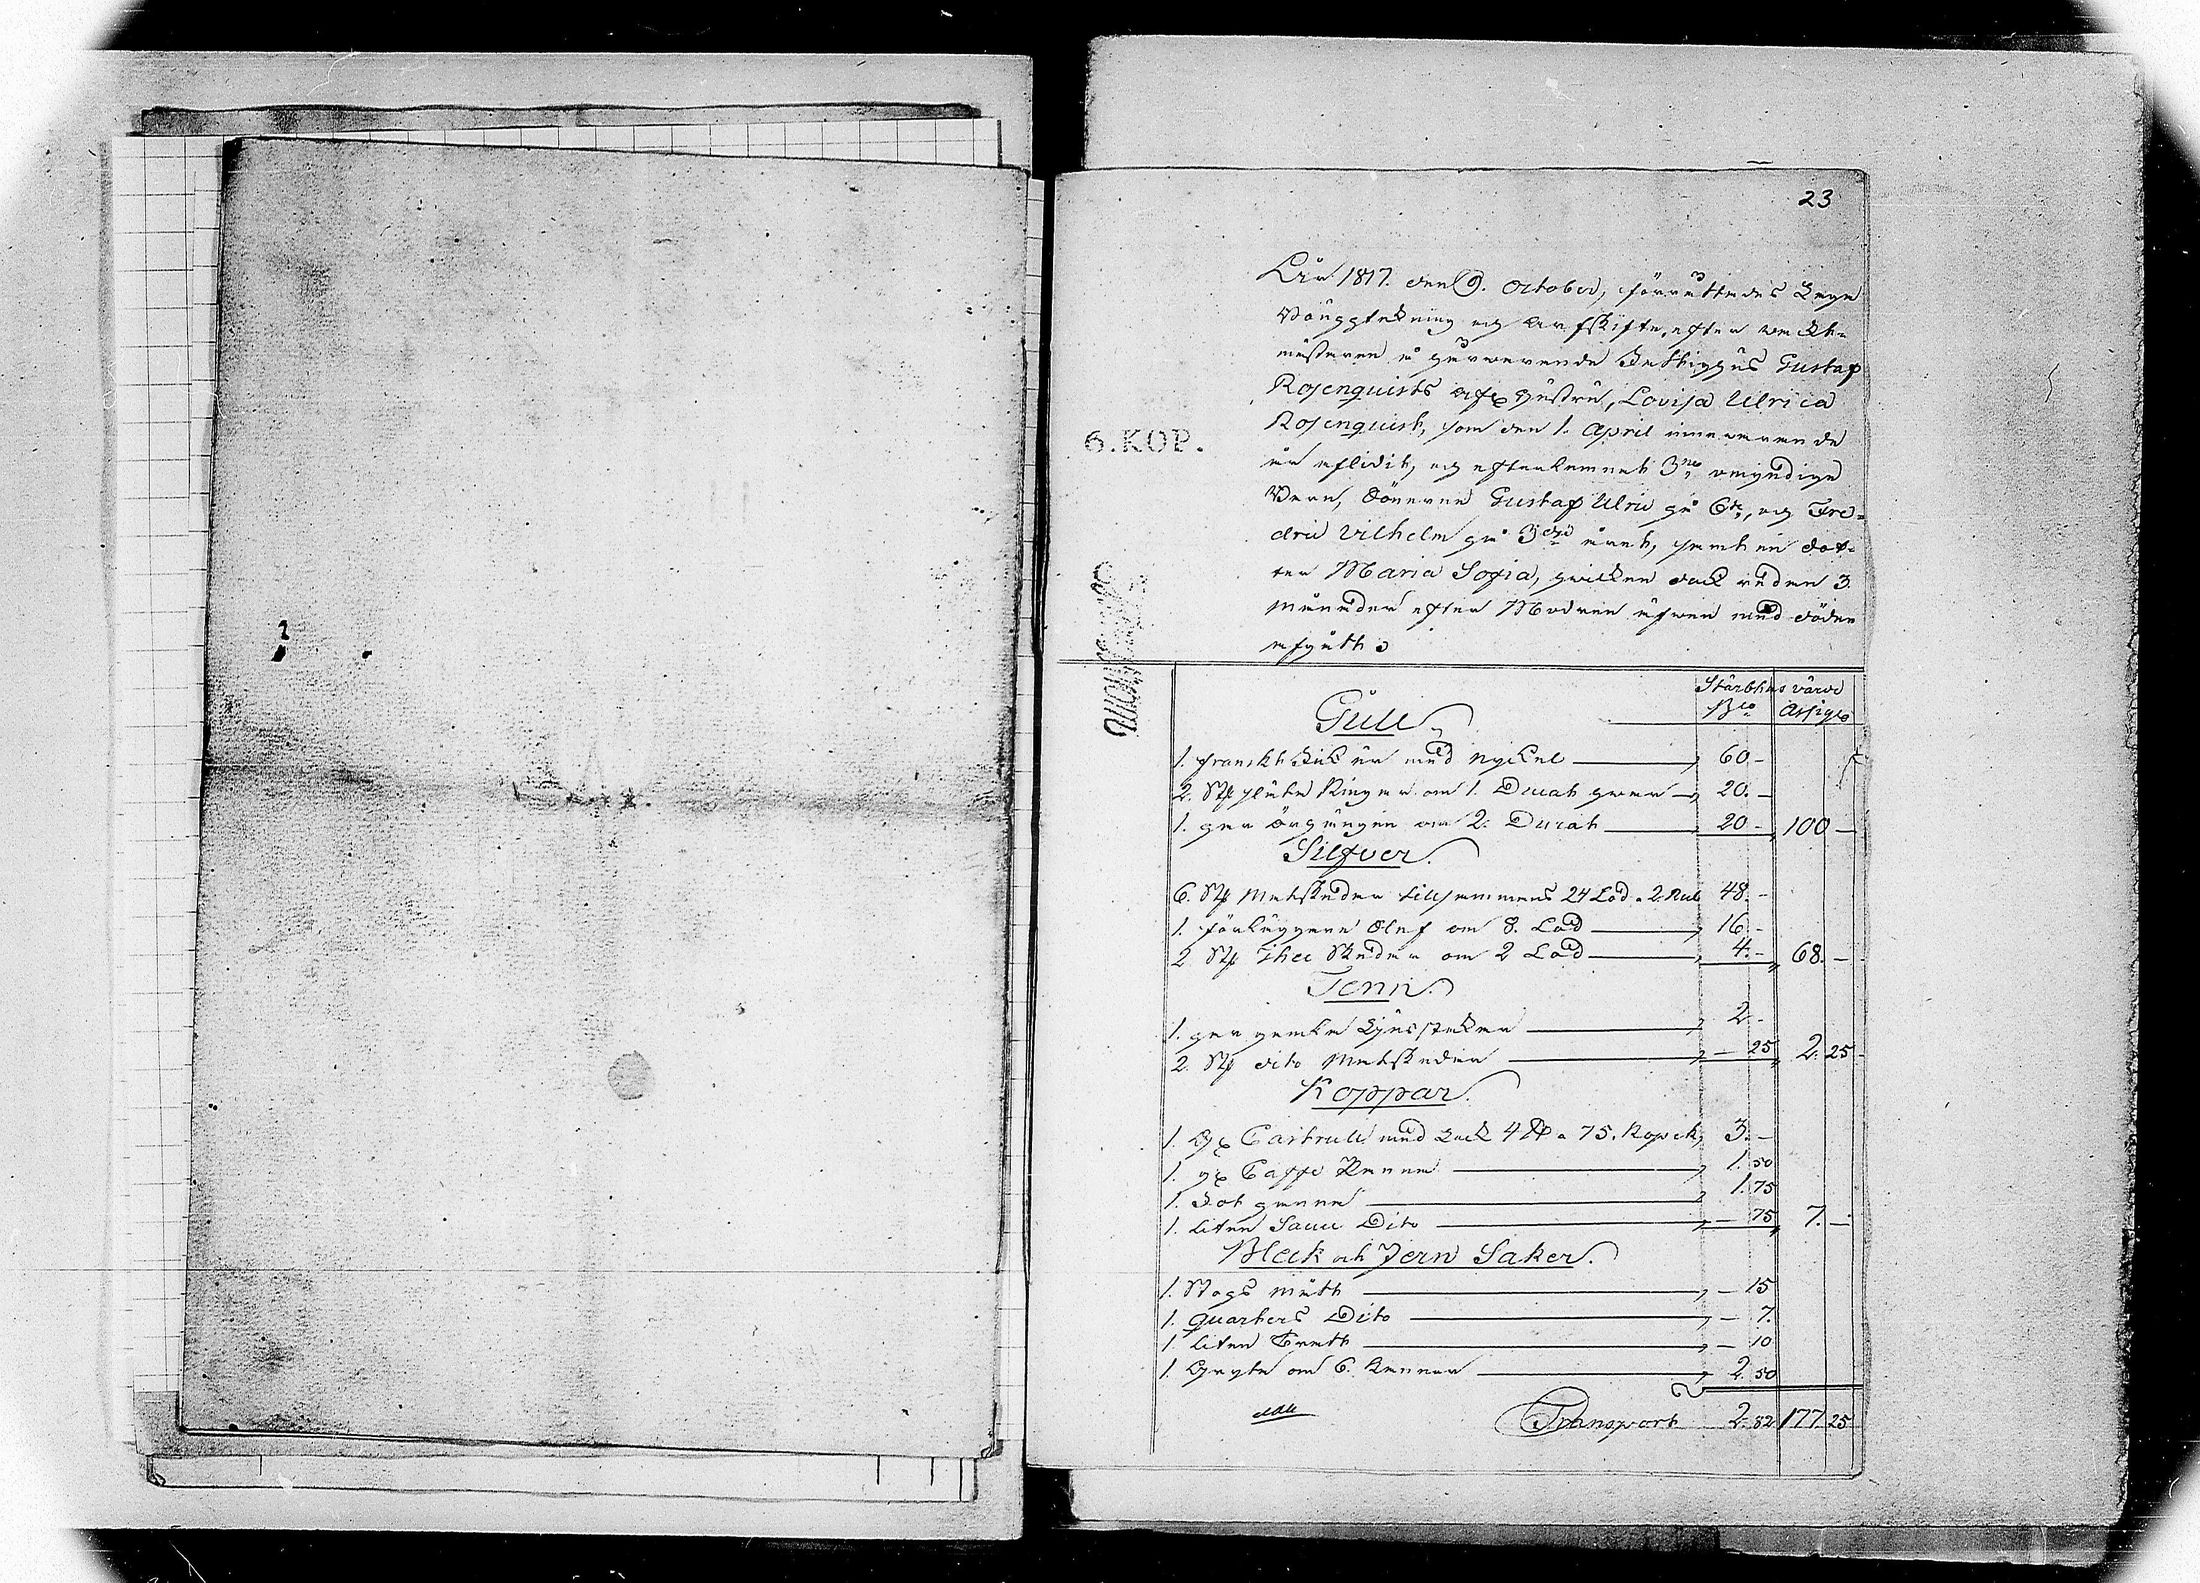 23
År 1817. den 9. October, förrättades Laga
Bouppteckning og arfskifte, efter wackt-
mästaren i härwarande Gustaf
Rosenquists afl. Hustru, Lovisa Ulrica
Rosenquist, som den 1. April innewarande
år aflidit, og efterlemnat 3ne omyndige
Barn, Sönerne Gustaf Ulric på 6te, og Fre-
dric Vilhelm på 3dje året, samt en dot-
ter Maria Sofia, hwilken dock redan 3.
månader efter Modren äfwen med döden
afgått.
6. KOP.
Stärbhus värde
Bco Assigt
Gull
1. franskt fick ur med nyckel 60.-
2. St släta Ringar om 1. Ducat hwar 20.-
1. par örhängen om 2. Ducat 20.- 100.-
Silfver.
6. St Matskedar tillsammans 24 Lod a 2. Rub 48.-
1. förläggare Slef om 8. Lod 16.-
2. St Thee Skedar om 2 Lod 4.- 68.-
Tenn.
1. par gamla Ljusstakar 2.-
2. St dito Matskedar - 25 2. 25.
Koppar.
1. Castrull med Lock 4 ℔ a 75. Kopek 3.-
1. Caffe Kanna 1. 50
1. Fot panna 1. 75
1. liten Dito - 75 7.-
Bleck och Jern Saker.
1. Stops mått - 15
1. Quarters Dito - 7.
1. liten Tratt - 10
1. Gryta om 6. Kannor 2. 50
Transport 2. 82 177. 25